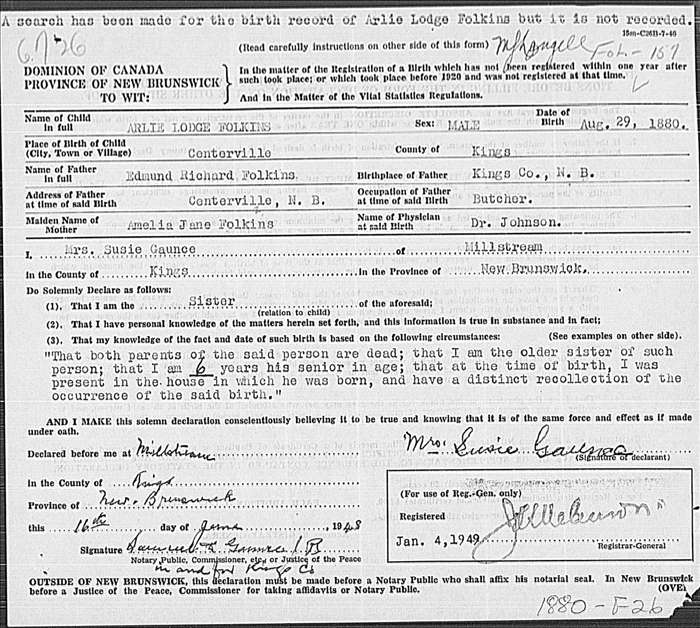 A search has been made for the birth record of Arlie Lodge Folkins but it is not recorded.
15m-C26B-7-46
6726
(Read carefully instructions on other side of this form)
Fol.- 157
DOMINION OF CANADA
PROVINCE OF NEW BRUNSWICK
TO WIT:
In the matter of the Registration of a Birth which has not been registered within one year after
such took place; or which took place before 1920 and was not registered at that time.
And in the Matter of the Vital Statistics Regulations.
Name of Child in full ARLIE LODGE FOLKINS Sex: MALE Date of Birth Aug. 29, 1880.
Place of Birth of Child (City, Town or Village) Centerville County of Kings
Name of Father in full Edmund Richard Folkins Birthplace of Father Kings Co., N. B.
Address of Father at time of said Birth Centerville, N. B. Occupation of Father at time of said Birth Butcher.
Maiden Name of Mother Amelia Jane Folkins Name of Physician at said Birth Dr. Johnson.
I, Mrs. Susie Gaunce of Millstream
in the County of Kings in the Province of New Brunswick.
Do Solemnly Declare as follows:
(1). That I am the Sister of the aforesaid;
(relation to child)
(2). That I have personal knowledge of the matters herein set forth, and this information is true in substance and in fact;
(3). That my knowledge of the fact and date of such birth is based on the following circumstances: (See examples on other side).
"That both parents of the said person are dead; that I am the older sister of such
person; that I am 6 years his senior in age; that at the time of birth, I was
present in the house in which he was born, and have a distinct recollection of the
occurrence of the said birth."
AND I MAKE this solemn declaration conscientiously believing it to be true and knowing that it is of the same force and effect as if made
under oath.
Declared before me at Millstream
Mrs. Susie Gaunce
(Signature of declarant)
in the County of Kings
Province of New Brunswick
this 16th day of June 1948
Signature
Notary Public, Commissioner, etc., or Justice of the Peace
in and for Kings Co
(For use of Reg.-Gen. only)
Registered
Jan. 4, 1949
Registrar-General
OUTSIDE OF NEW BRUNSWICK, this declaration must be made before a Notary Public who shall affix his notarial seal. In New Brunswick
before a Justice of the Peace, Commissioner for taking affidavits or Notary Public. (OVER)
1880-F-26